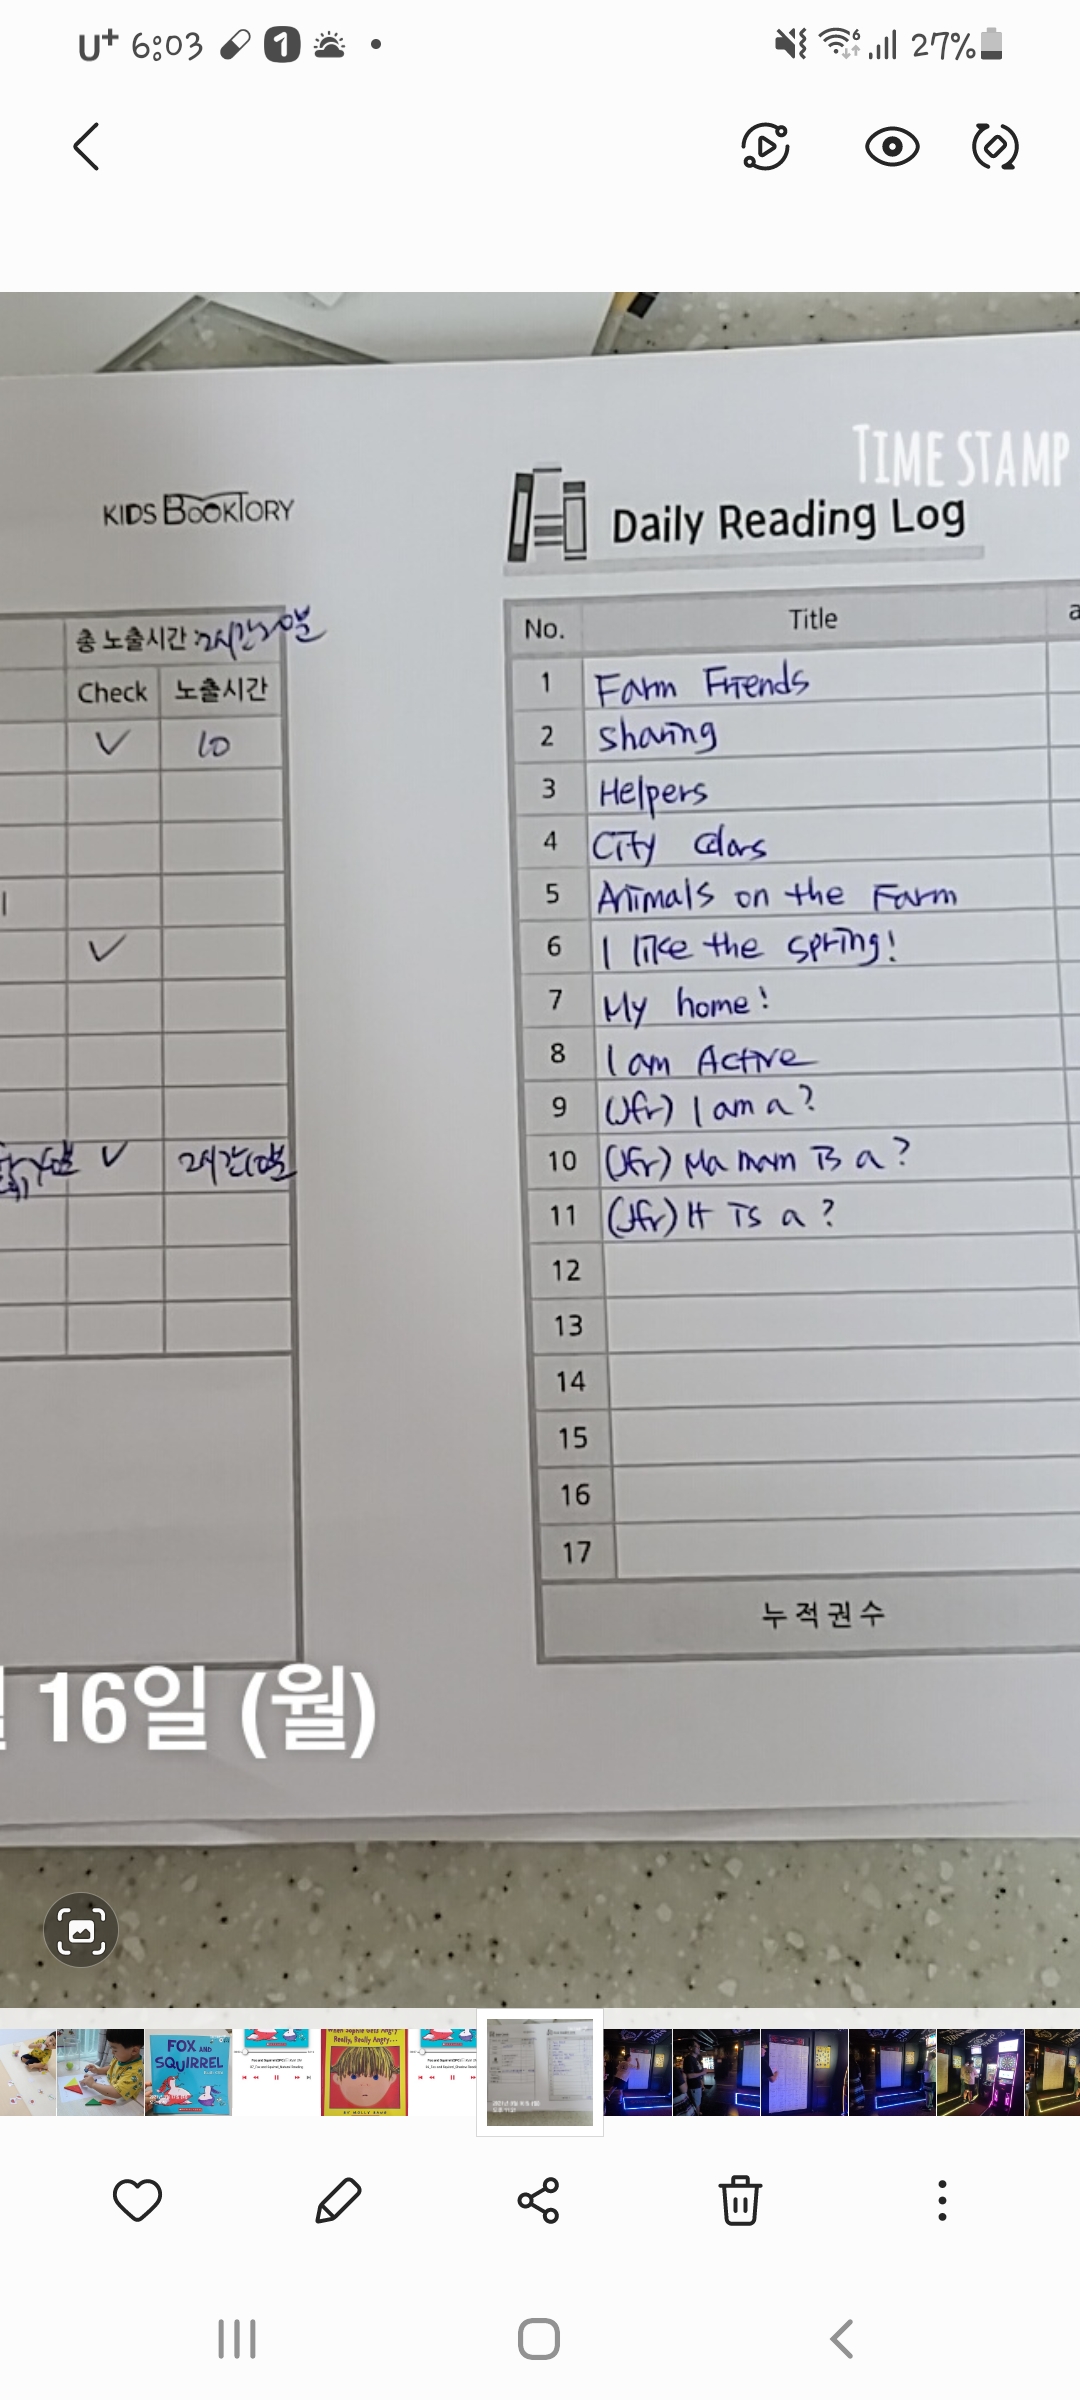 U+ 6:03 1 27%
TIME STAMP
KIDS BOOKTORY
Daily Reading Log
총 노출시간
Check 노출시간
10
2시간10분
No. Title
1 Farm Friends
2 sharing
3 Helpers
4 City Colors
5 Animals on the Farm
6 I like the spring!
7 My home!
8 I am Active
9 (Jfr) I am a?
10 (Jfr) Ma mam is a?
11 (Jfr) It is a?
12
13
14
15
16
17
누적권수
16일 (월)
FOX AND SQUIRREL
When Sophie Gets Angry
Really, Really Angry...
BY MOLLY BANG